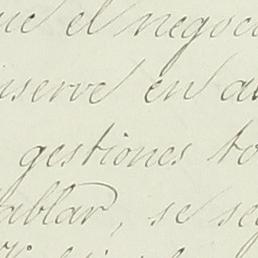 que el negoci
nserve en al
gestiones to
ablar, se se